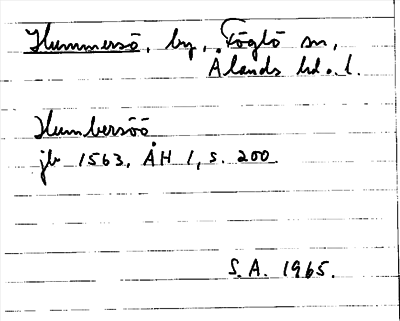 Hummersö, by, Föglö sn,
Ålands hd o. l.
Humbersöö
jb 1563, ÅH 1, s. 200
S.A. 1965.